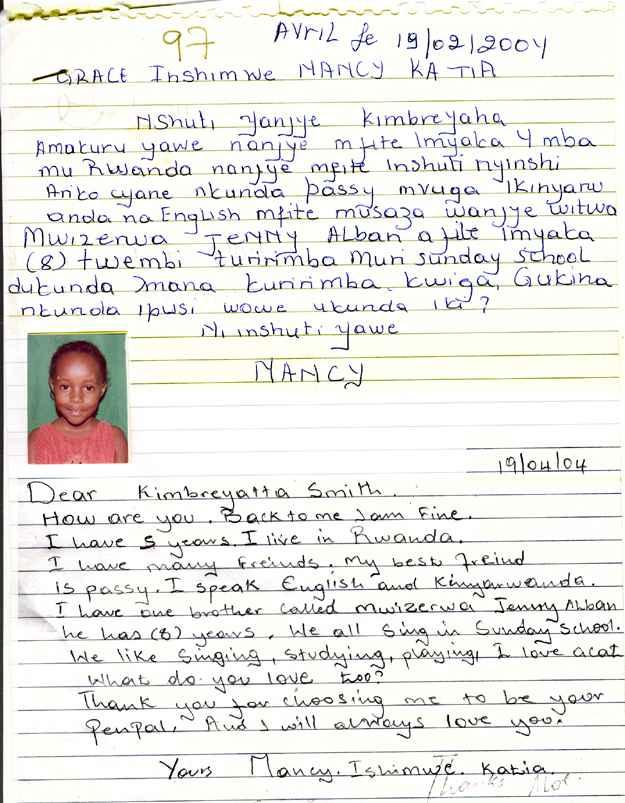 97
AVRIL le 19/02/2004
GRACE Inshimwe NANCY KATIA
NShuti yanjye Kimbreyaha
Amakuru yawe nanjye mfite Imyaka 4 mba
mu Rwanda nanjye mfite Inshuti nyinshi
Ariko cyane nkunda passy mvuga Ikinyaru
anda na English mfite musaza wanjye witwa
Mwizerwa JENNY Alban afite Imyaka
(8) twembi turirimba muri sunday school
dukunda Imana kuririmba, kwiga, Gukina
nkunda Ipusi wowe ukunda iki?
Ni inshuti yawe
NANCY
19/04/04
Dear Kimbreyatta Smith.
How are you. Back to me I am Fine.
I have 5 years. I live in Rwanda.
I have many Freinds. My best freind
is passy. I speak English and Kinyarwanda.
I have one brother called Mwizerwa Jenny Alban
he has (8) years. We all Sing in Sunday School.
We like Singing, studying, playing, I love a cat
What do you love too?
Thank you for choosing me to be your
penpal, And I will always love you.
Yours Nancy. Ishimwe. Katia.
Thanks